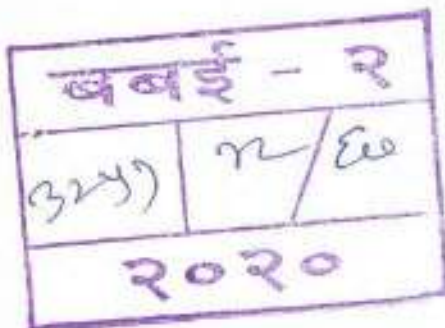 बबई - २
३२५१ १२/६०
२०२०